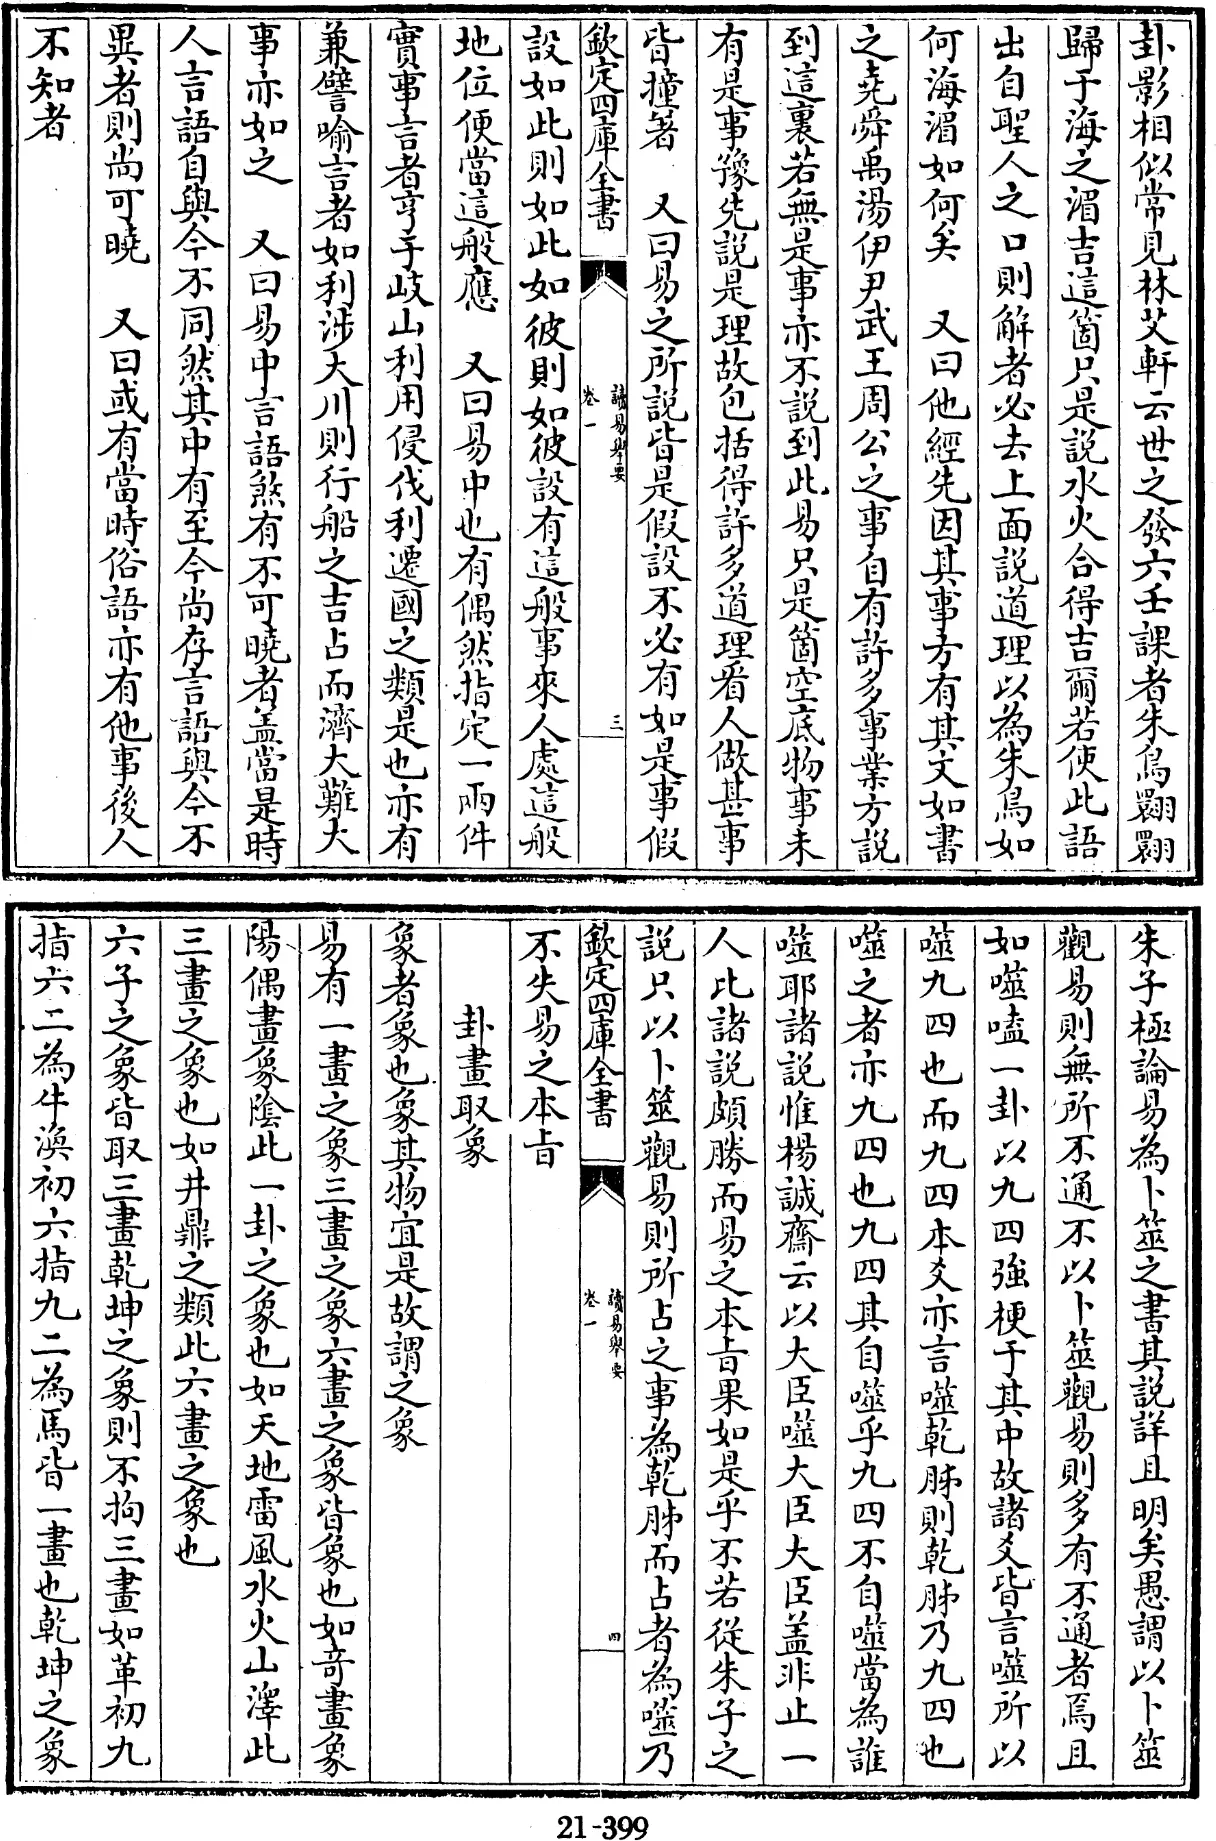 卦影相似常見林艾軒云世之發六壬課者朱鳥翾翾
歸于海之湄吉這箇只是說水火合得吉爾若使此語
出自聖人之口則解者必去上面說道理以為朱鳥如
何海湄如何矣　又曰他經先因其事方有其文如書
之堯舜禹湯伊尹武王周公之事自有許多事業方說
到這裏若無是事亦不說到此易只是箇空底物事未
有是事豫先說是理故包括得許多道理看人做甚事
皆撞著　又曰易之所說皆是假設不必有如是事假
欽定四庫全書
讀易舉要
卷一
三
設如此則如此如彼則如彼設有這般事來人處這般
地位便當這般應　又曰易中也有偶然指定一兩件
實事言者亨于岐山利用侵伐利遷國之類是也亦有
兼譬喻言者如利涉大川則行船之吉占而濟大難大
事亦如之　又曰易中言語煞有不可曉者盖當是時
人言語自與今不同然其中有至今尚存言語與今不
異者則尚可曉　又曰或有當時俗語亦有他事後人
不知者
朱子極論易為卜筮之書其說詳且明矣愚謂以卜筮
觀易則無所不通不以卜筮觀易則多有不通者焉且
如噬嗑一卦以九四強梗于其中故諸爻皆言噬所以
噬九四也而九四本爻亦言噬乾胏則乾胏乃九四也
噬之者亦九四也九四其自噬乎九四不自噬當為誰
噬耶諸說惟楊誠齋云以大臣噬大臣大臣盖非止一
人比諸說頗勝而易之本旨果如是乎不若從朱子之
說只以卜筮觀易則所占之事為乾胏而占者為噬乃
欽定四庫全書
讀易舉要
卷一
四
不失易之本旨
卦畫取象
象者象也象其物宜是故謂之象
易有一畫之象三畫之象六畫之象皆象也如奇畫象
陽偶畫象陰此一卦之象也如天地雷風水火山澤此
三畫之象也如井鼎之類此六畫之象也
六子之象皆取三畫乾坤之象則不拘三畫如革初九
指六二為牛渙初六指九二為馬皆一畫也乾坤之象
21-399